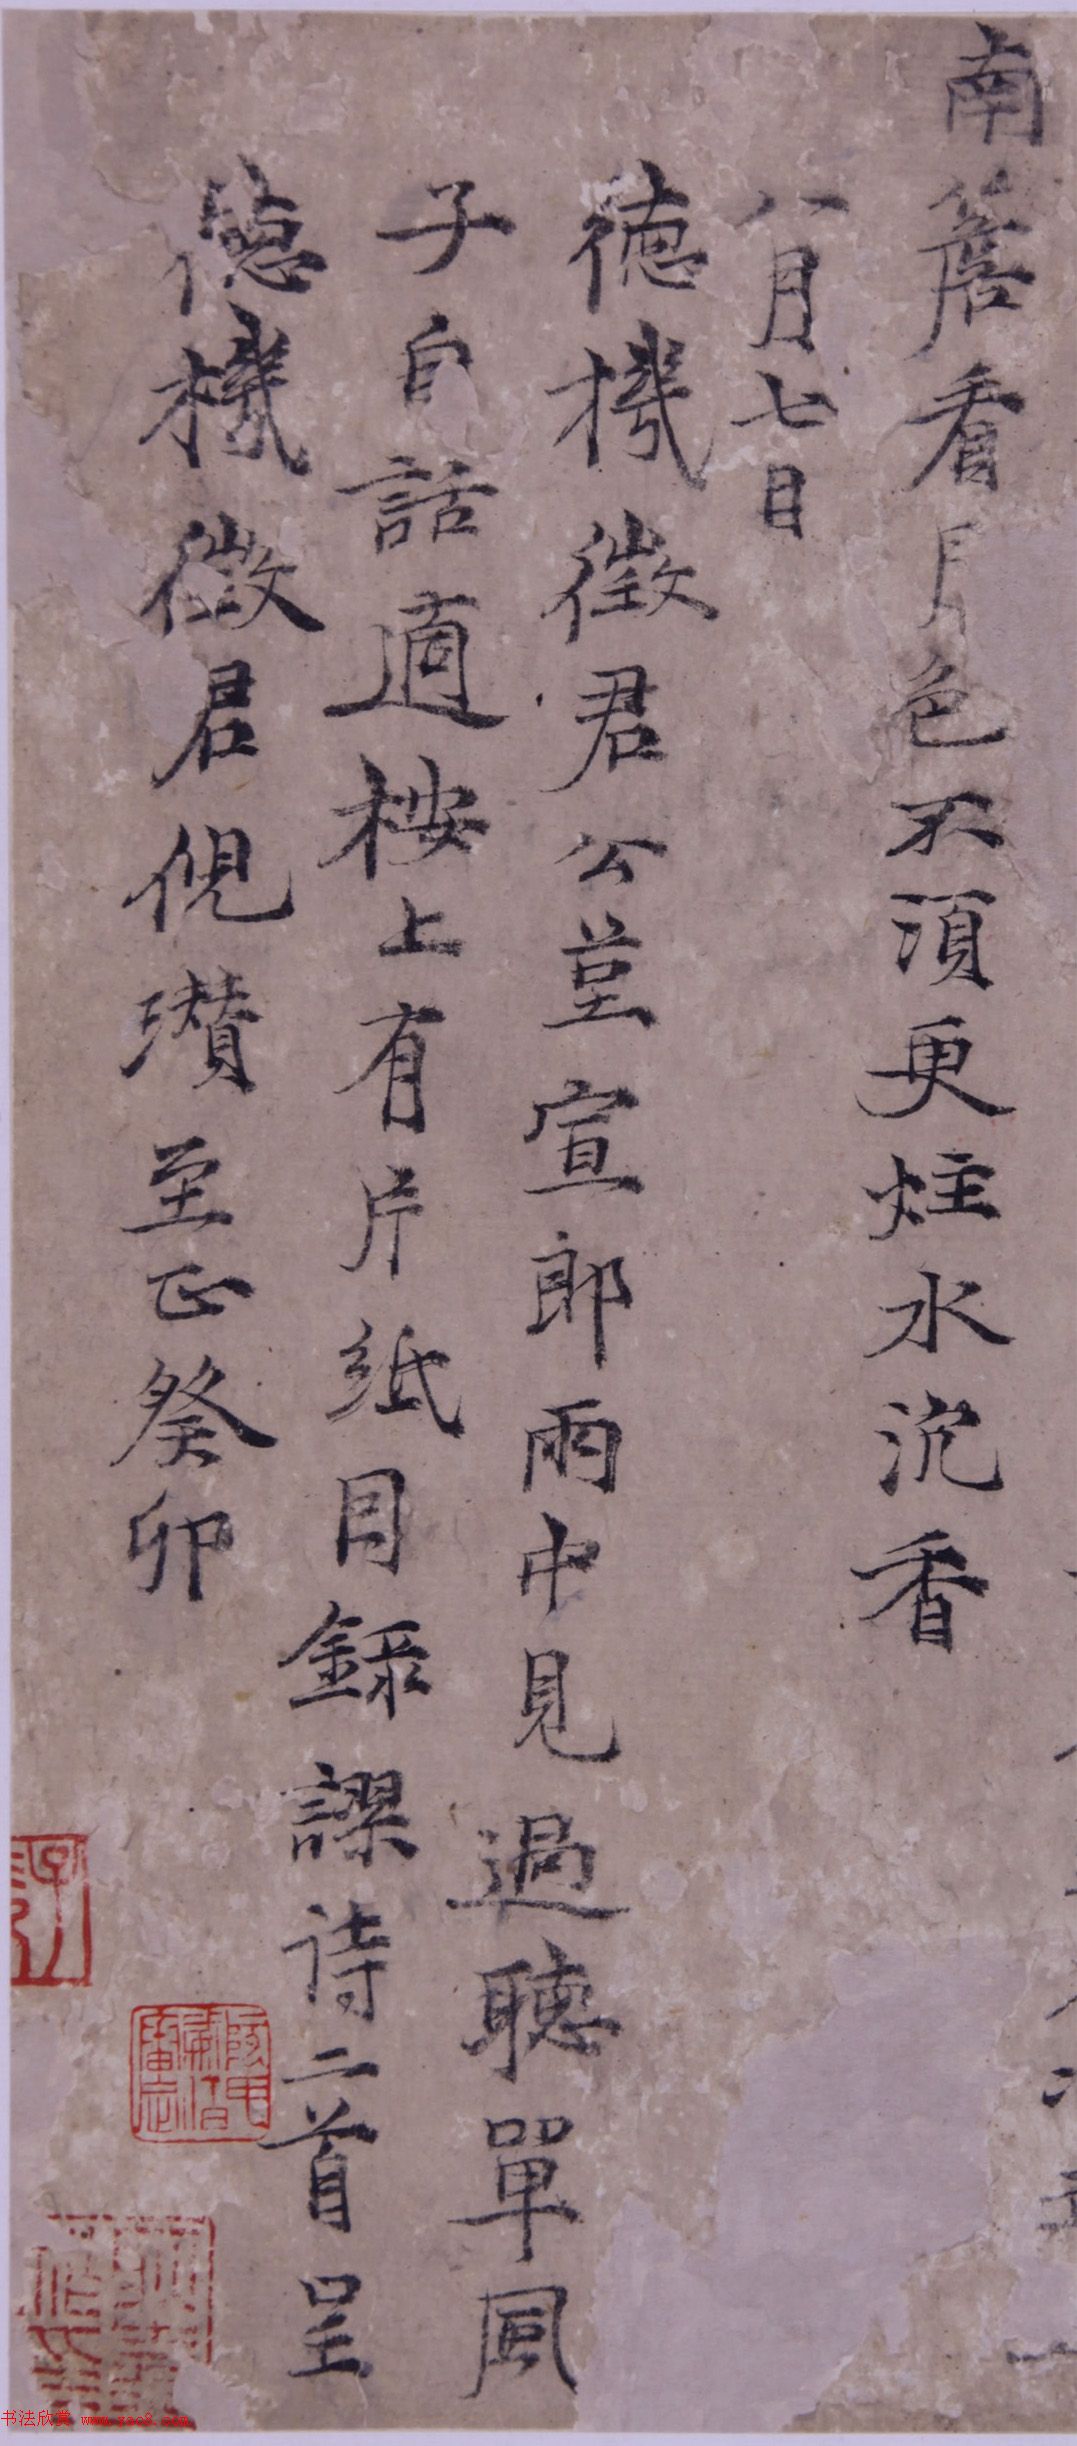 南簷看月色不須更炷水沉香
八月七日
德機徵君公莹宣郎雨中見過聽單風
子自話適桉上有片紙目錄謬诗二首呈
德機徵君倪瓚至正癸卯
书法欣赏 www.zsc8.com